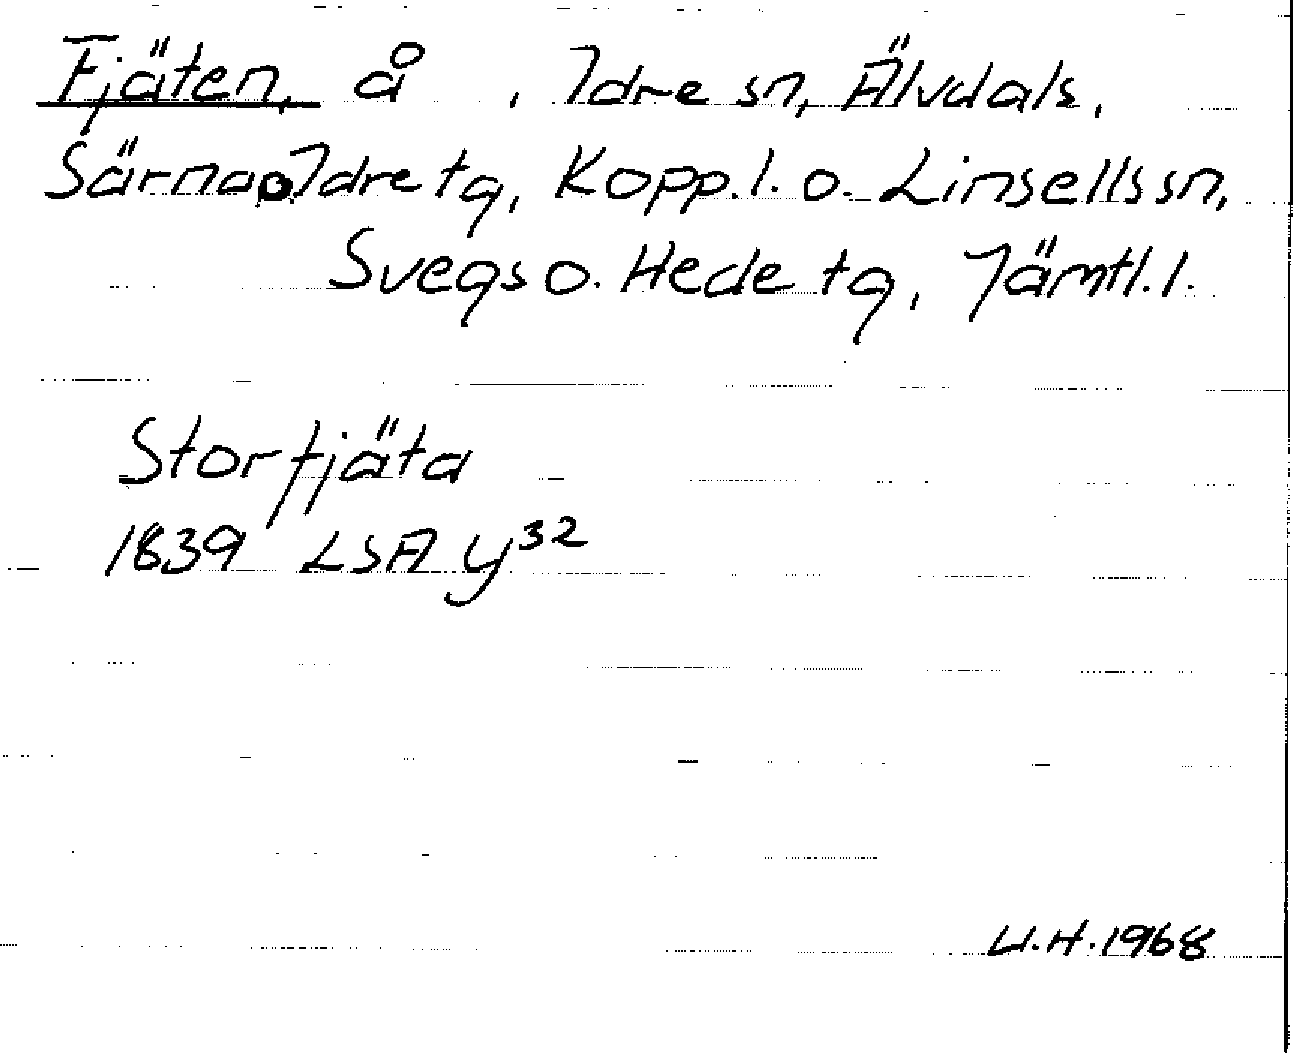 Fjäten, å , Idre sn, Älvdals,
Särna o Idre tg, Kopp. l. o. Linsells sn,
Svegs o. Hede tg, Jämtl. l.
Storfjäta
1839 LSA y³²
U.H. 1968